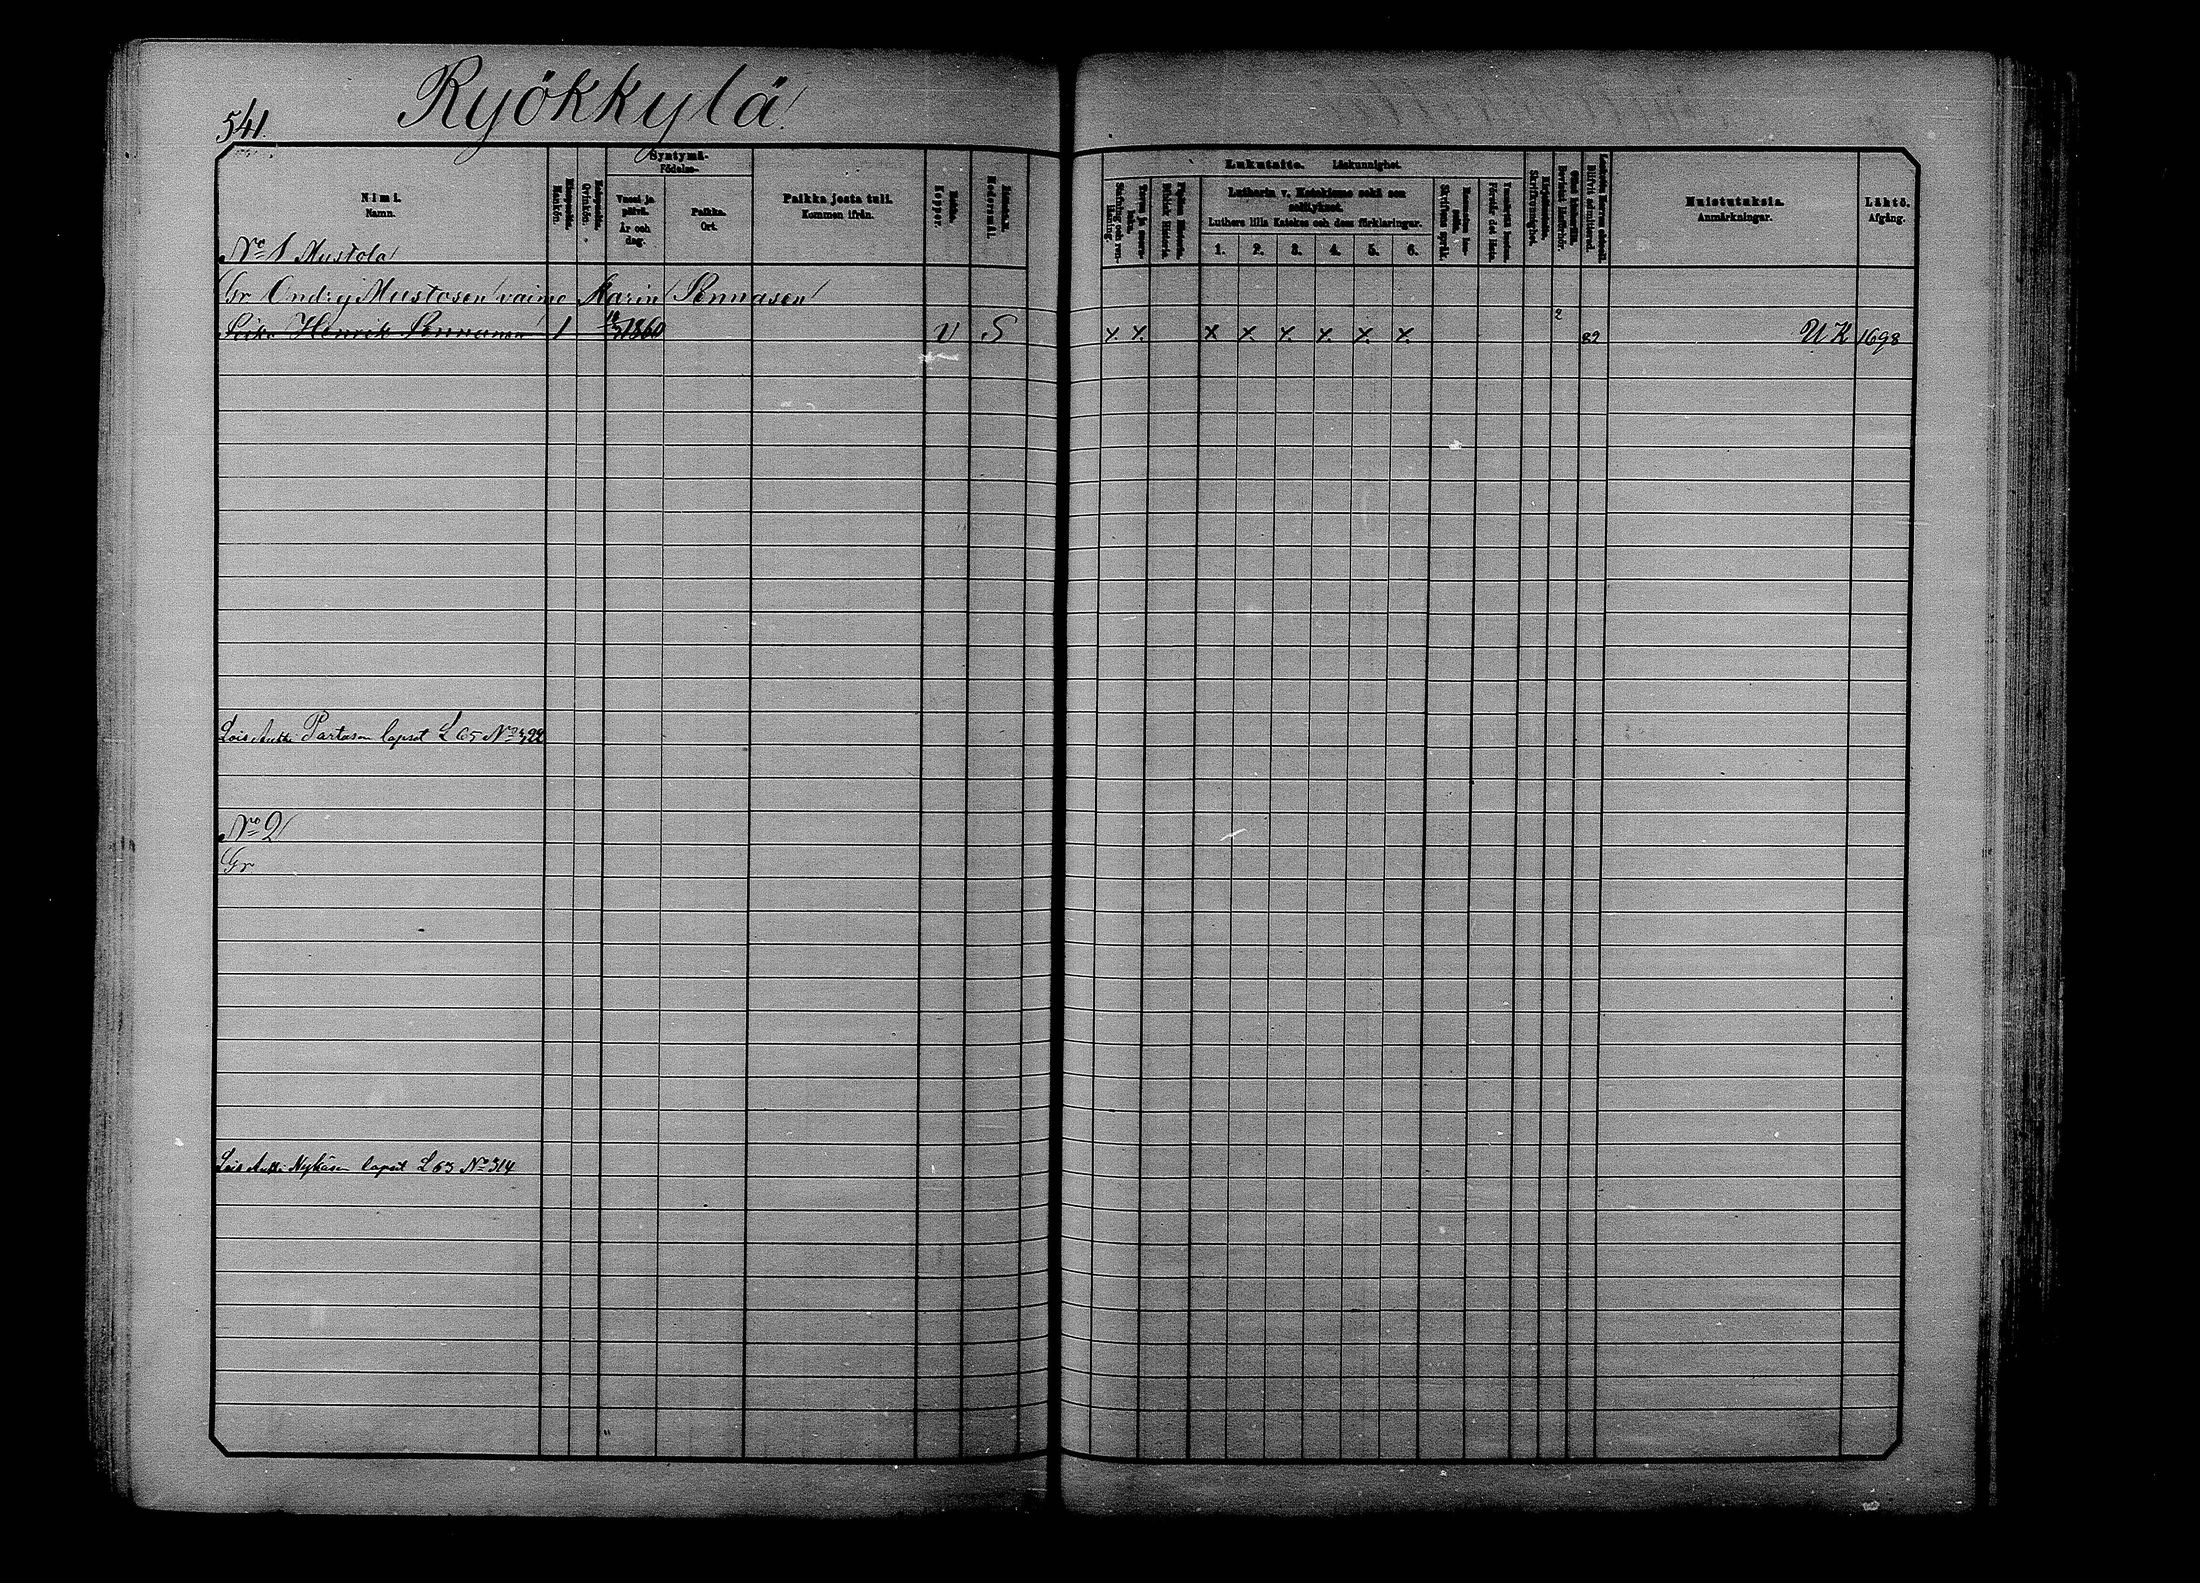 541.
Ryökkylä
Syntymä.
Födelse.
Nimi.
Namn.
Miespuolia.
Mankön.
Vaimopuolia.
Qvinkön.
Vuosi ja päivä.
År och dag.
Paikka.
Ort.
Paikka josta tuli.
Kommen ifrån.
Rokko.
Koppor.
Lukutaito. Läskunnighet.
Lutherin v. Katekismo sekä sen selitykset.
Luthers lilla Katekes och dess förklaringar.
1. 2. 3. 4. 5. 6.
Muistutuksia.
Anmärkningar.
Lähtö.
Afgång.
No 1 Mustola
Gr Ondrej Mustosen vaimo Karin Sonnasen
Henrik 1 1860 v S x x. x x. x. x. x. x. 2 82 U K 1698
Lois Antti Partasen lapset L 65 No 322
No 2
Gr
Lois Antti Nykäsen lapset L 63 No 314